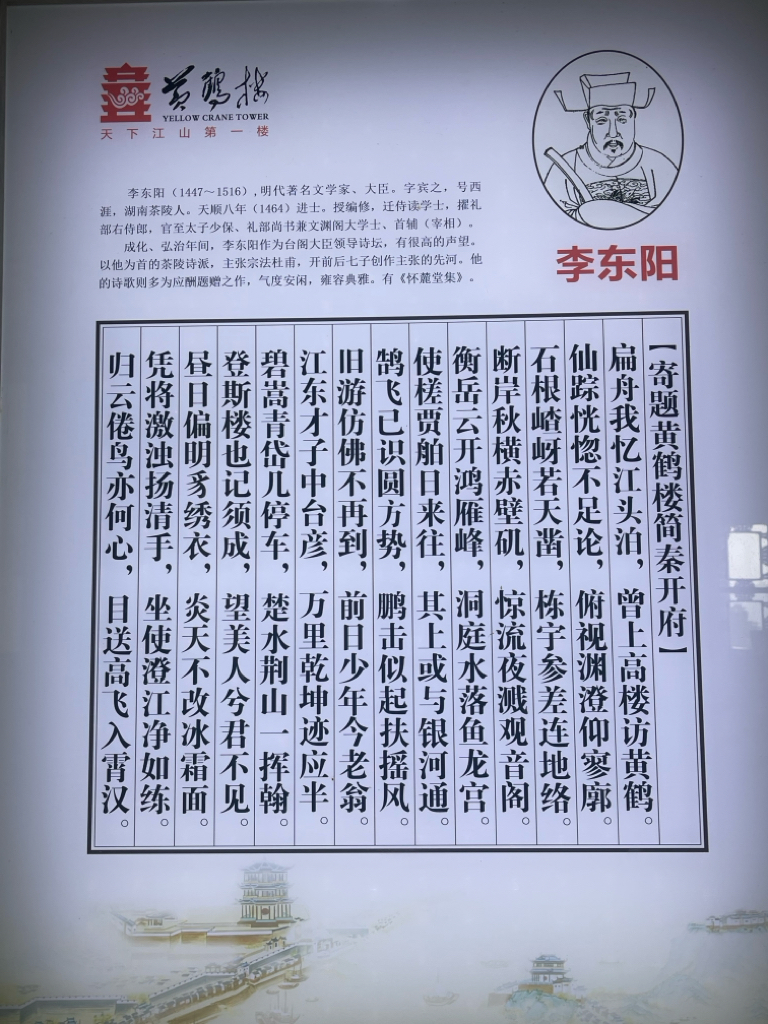 黄鹤楼
YELLOW CRANE TOWER
天下江山第一楼
李东阳（1447～1516）,明代著名文学家、大臣。字宾之，号西
涯，湖南茶陵人。天顺八年（1464）进士。授编修，迁侍读学士，擢礼
部右侍郎，官至太子少保、礼部尚书兼文渊阁大学士、首辅（宰相）。
成化、弘治年间，李东阳作为台阁大臣领导诗坛，有很高的声望。
以他为首的茶陵诗派，主张宗法杜甫，开前后七子创作主张的先河。他
的诗歌则多为应酬题赠之作，气度安闲，雍容典雅。有《怀麓堂集》。
李东阳
【寄题黄鹤楼简秦开府】
扁舟我忆江头泊，曾上高楼访黄鹤。
仙踪恍惚不足论，俯视渊澄仰寥廓。
石根嵖岈若天凿，栋宇参差连地络。
断岸秋横赤壁矶，惊流夜溅观音阁。
衡岳云开鸿雁峰，洞庭水落鱼龙宫。
使槎贾舶日来往，其上或与银河通。
鹄飞已识圆方势，鹏击似起扶摇风。
旧游仿佛不再到，前日少年今老翁。
江东才子中台彦，万里乾坤迹应半。
碧嵩青岱几停车，楚水荆山一挥翰。
登斯楼也记须成，望美人兮君不见。
昼日偏明豸绣衣，炎天不改冰霜面。
凭将激浊扬清手，坐使澄江净如练。
归云倦鸟亦何心，目送高飞入霄汉。